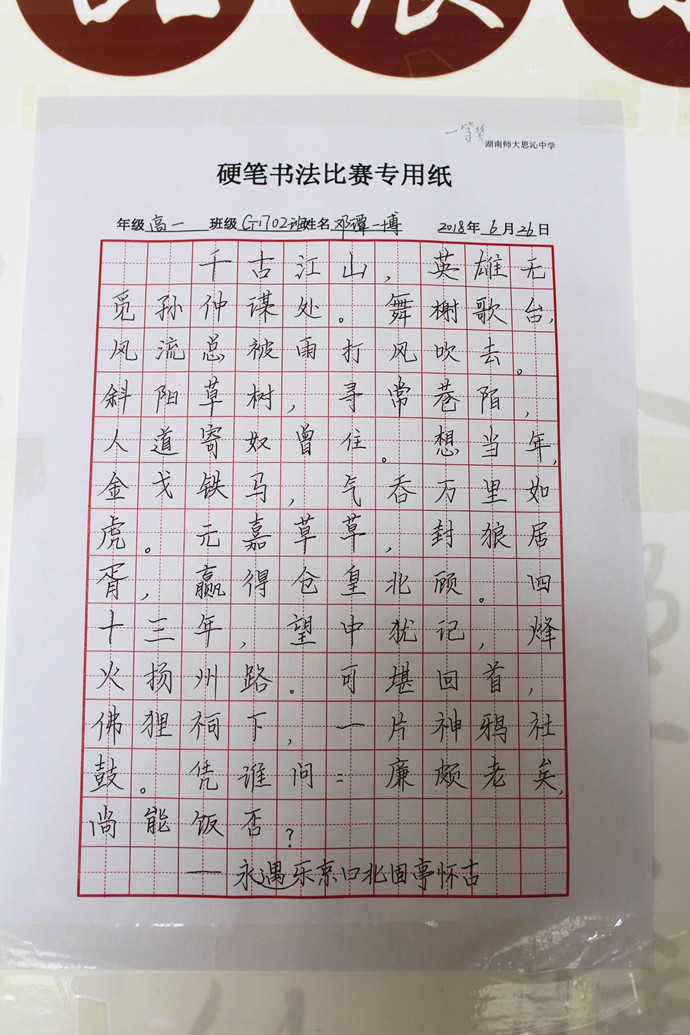 一等奖
湖南师大思沁中学
硬笔书法比赛专用纸
年级 高一 班级 G1702班 姓名 邓谭一博 2018年6月26日
千古江山，英雄无
觅孙仲谋处。舞榭歌台，
风流总被雨打风吹去。
斜阳草树，寻常巷陌，
人道寄奴曾住。想当年，
金戈铁马，气吞万里如
虎。元嘉草草，封狼居
胥，赢得仓皇北顾。四
十三年，望中犹记，烽
火扬州路。可堪回首，
佛狸祠下，一片神鸦社
鼓。凭谁问：廉颇老矣，
尚能饭否？
——永遇乐京口北固亭怀古